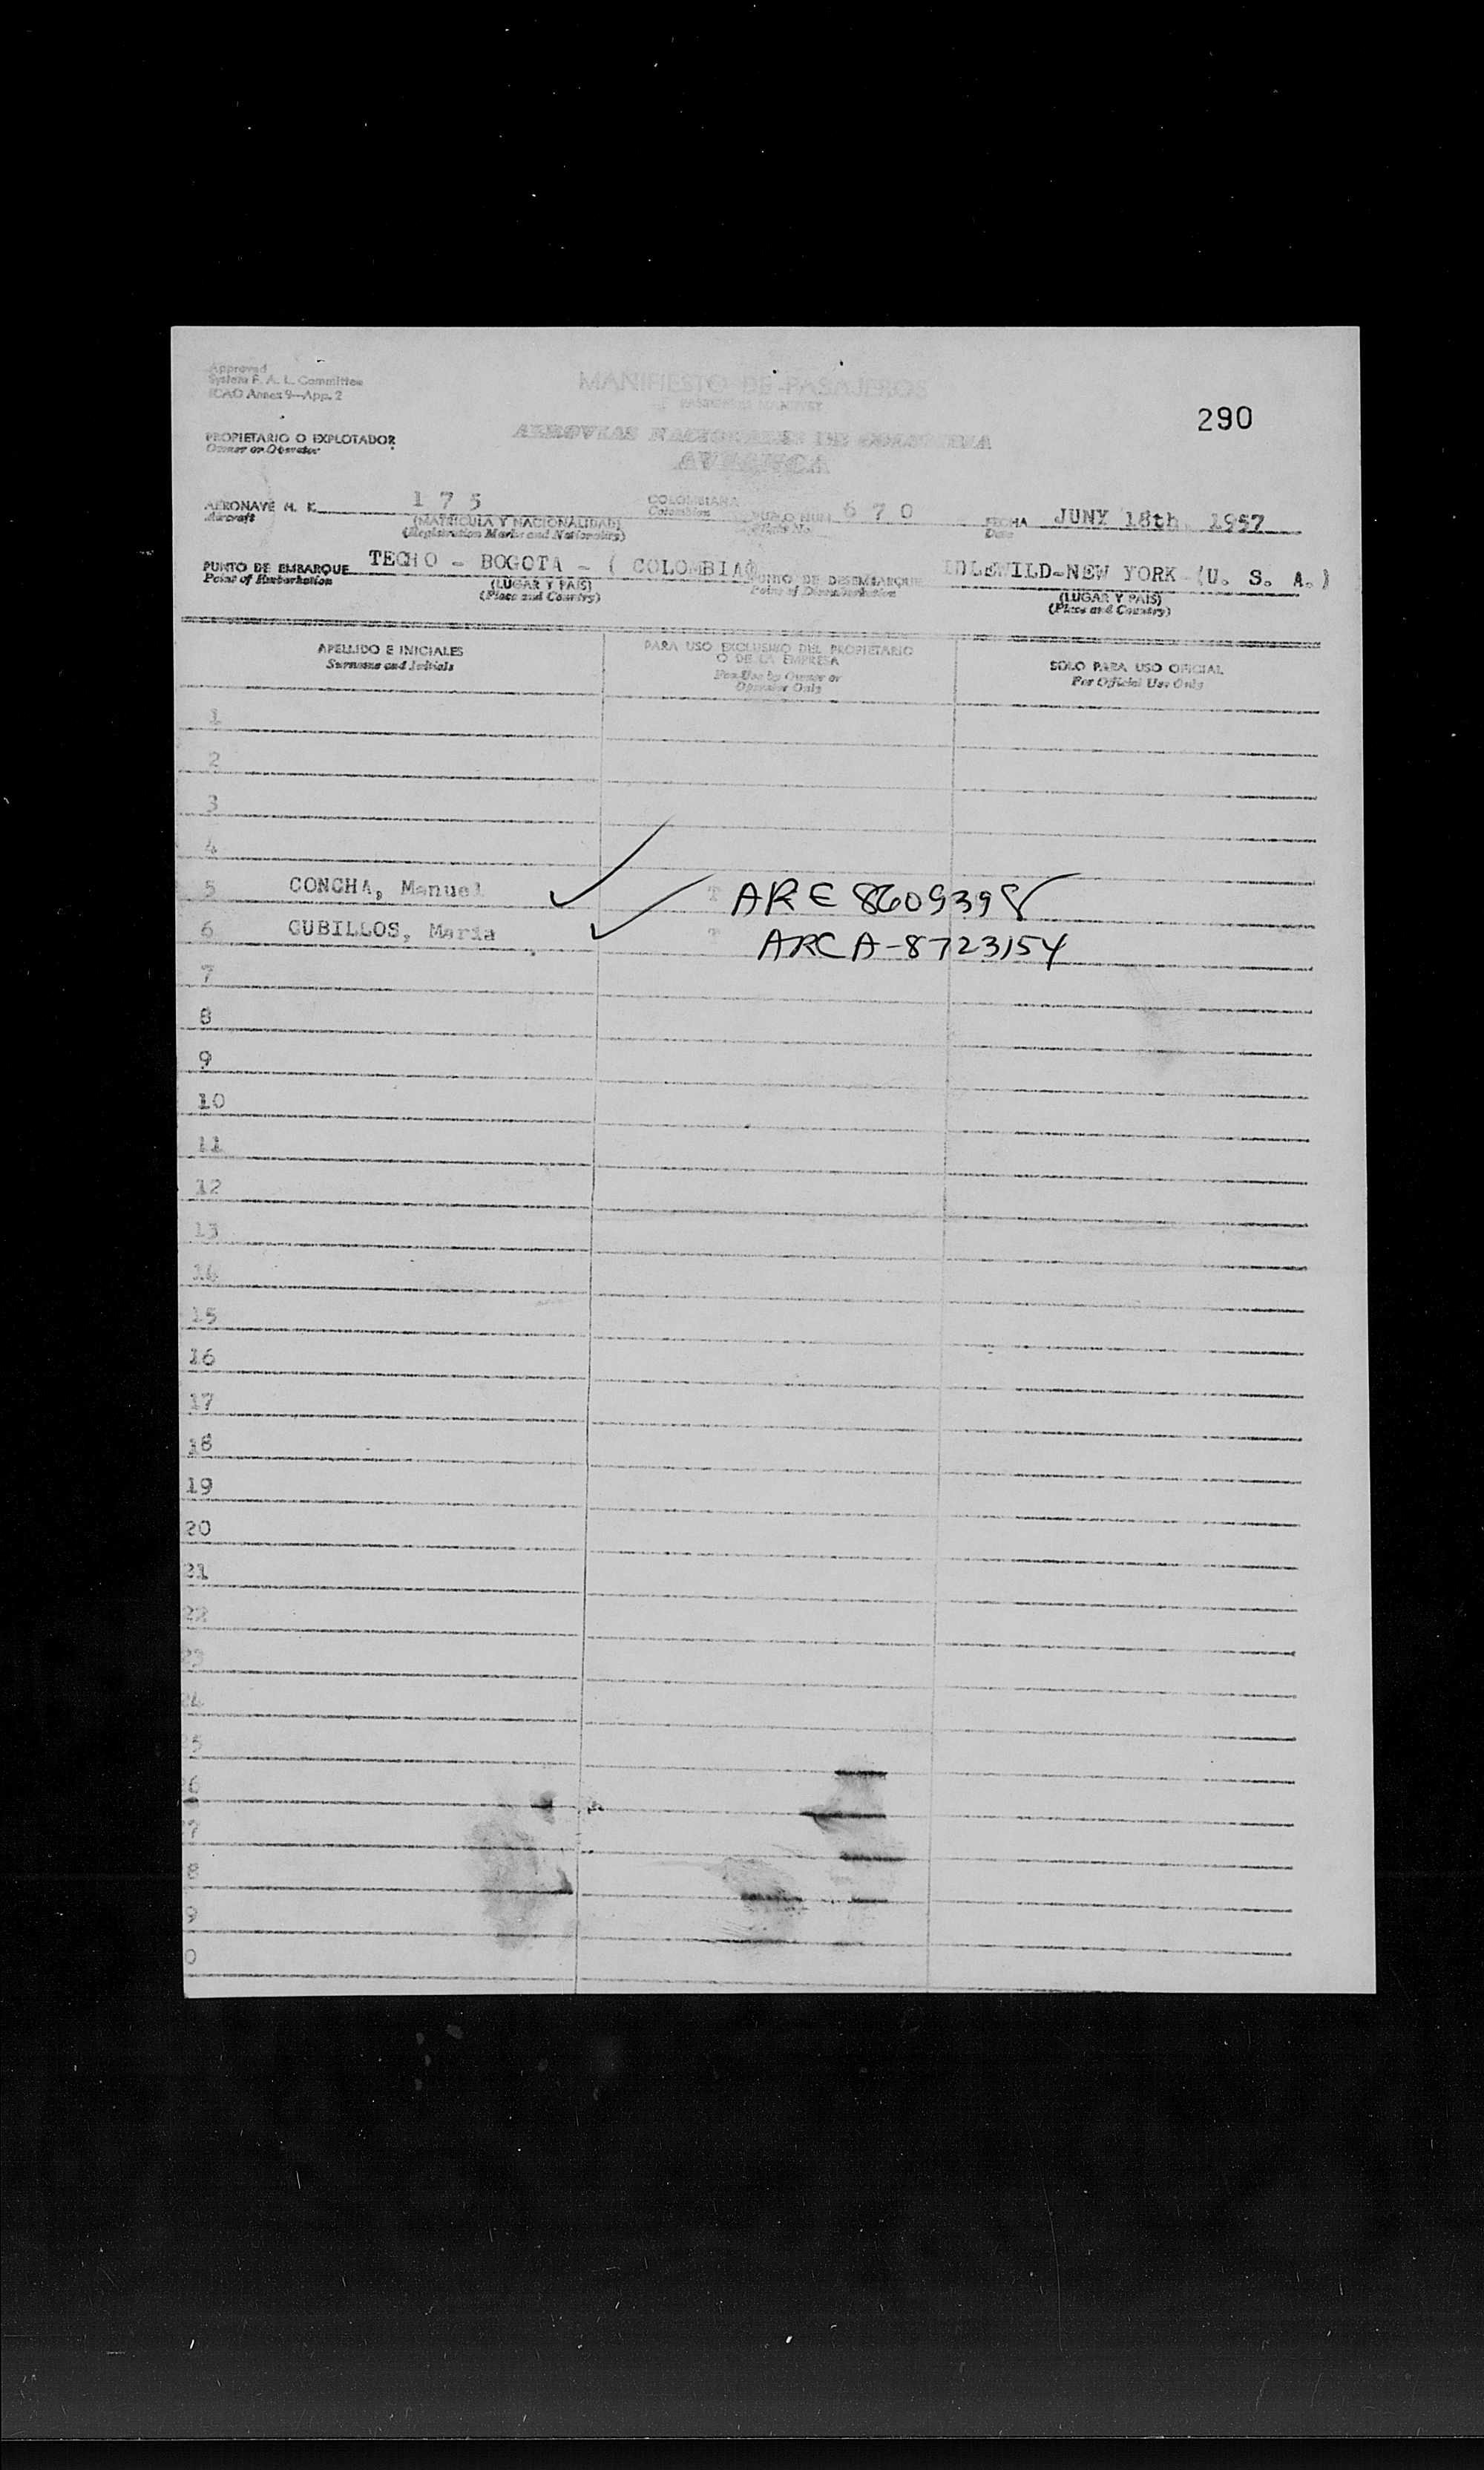 Approved
System F. A. L. Committee
ICAO Annex 9—App. 2
MANIFIESTO DE PASAJEROS
PASSENGER MANIFEST
290
PROPIETARIO O EXPLOTADOR
Owner or Operator
AEROVIAS NACIONALES DE COLOMBIA
AVIANCA
AERONAVE H. K. 1 7 5 COLOMBIANA VUELO NUM 6 7 0 FECHA JUNY 18th. 1957
Aircraft (MATRICULA Y NACIONALIDAD) Colombian Flight No. Date
(Registration Marks and Nationality)
PUNTO DE EMBARQUE TECHO - BOGOTA - ( COLOMBIA PUNTO DE DESEMBARQUE IDLEWILD-NEW YORK (U. S. A.)
Point of Embarkation (LUGAR Y PAIS) Point of Disembarkation (LUGAR Y PAIS)
(Place and Country) (Place and Country)
APELLIDO E INICIALES PARA USO EXCLUSIVO DEL PROPIETARIO SOLO PARA USO OFICIAL
Surname and Initials O DE LA EMPRESA For Official Use Only
For Use by Owner or
Operator Only
1
2
3
4
5 CONCHA, Manuel T ARE 8609398
6 CUBILLOS, Maria T ARC A-8723154
7
8
9
10
11
12
13
14
15
16
17
18
19
20
21
22
23
24
5
6
7
8
9
0